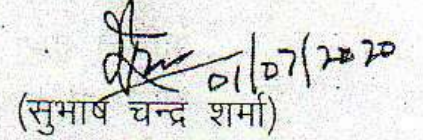 01/07/2020
(सुभाष चन्द्र शर्मा)